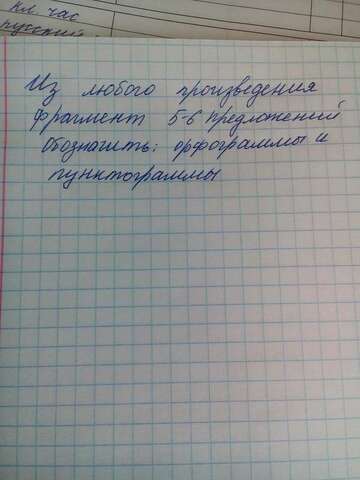 кл. час
русский
Из любого произведения
фрагмент 5-6 предложений
Обозначить: орфограммы и
пунктограммы